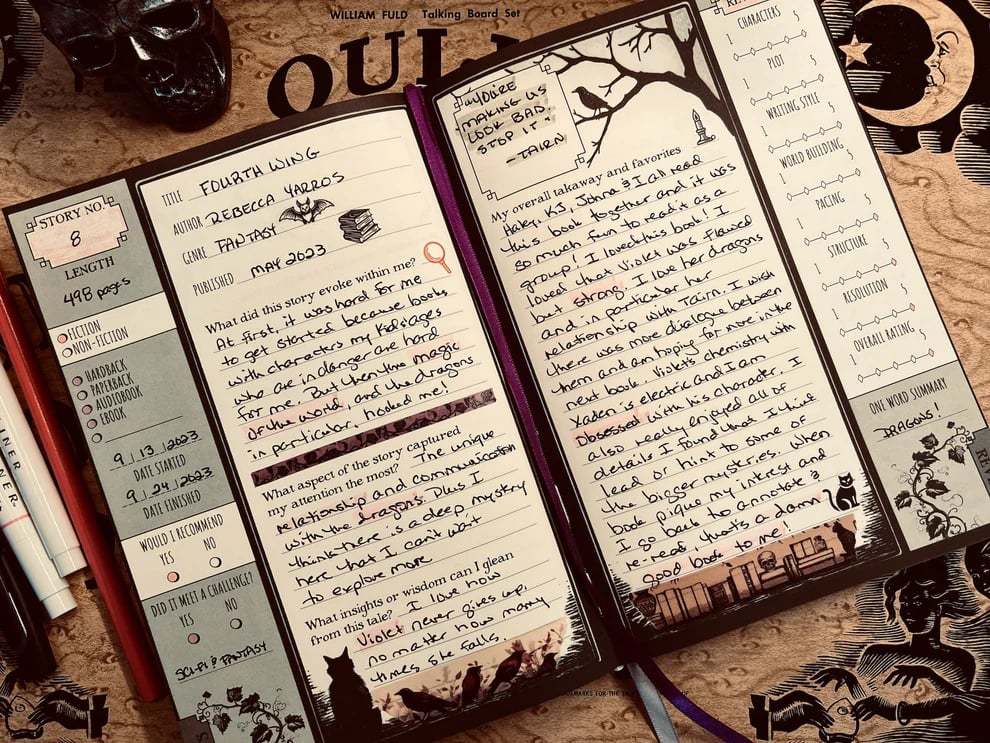 WILLIAM FULD Talking Board Set
STORY NO.
8
LENGTH
498 pages
FICTION
NON-FICTION
HARDBACK
PAPERBACK
AUDIOBOOK
EBOOK
9/13/2023
DATE STARTED
9/24/2023
DATE FINISHED
WOULD I RECOMMEND
YES NO
DID IT MEET A CHALLENGE?
YES NO
SCI-FI & FANTASY
TITLE FOURTH WING
AUTHOR REBECCA YARROS
GENRE FANTASY
PUBLISHED MAY 2023
What did this story evoke within me?
At first, it was hard for me
to get started because books
with characters my kids ages
who are in danger are hard
for me. But then the magic
of the world, and the dragons
in particular, hooked me!
What aspect of the story captured
my attention the most? The unique
relationship and communication
with the dragons. Plus I
think there is a deep mystery
here that I can't wait
to explore more
What insights or wisdom can I glean
from this tale? I love how
Violet never gives up,
no matter how many
times she falls.
"YOU'RE
MAKING US
LOOK BAD.
STOP IT."
-TAIRN
My overall takaway and favorites
Haley, KJ, Johnna & I all read
this book together and it was
so much fun to read it as a
group! I loved this book! I
loved that Violet was flawed
but strong. I love her dragons
and in particular her
relationship with Tairn. I wish
there was more dialogue between
them and am hoping for more in the
next book. Violet's chemistry with
Xaden is electric and I am
Obsessed with his character. I
also really enjoyed all of
details I found that I think
lead or hint to some of
the bigger mysteries. When
book pique my interest and
I go back to annotate &
re-read, that's a damn
good book to me!
CHARACTERS
1 5
PLOT
1 5
WRITING STYLE
1 5
WORLD BUILDING
1 5
PACING
1 5
STRUCTURE
1 5
RESOLUTION
1 5
OVERALL RATING
1 5
ONE WORD SUMMARY
DRAGONS!